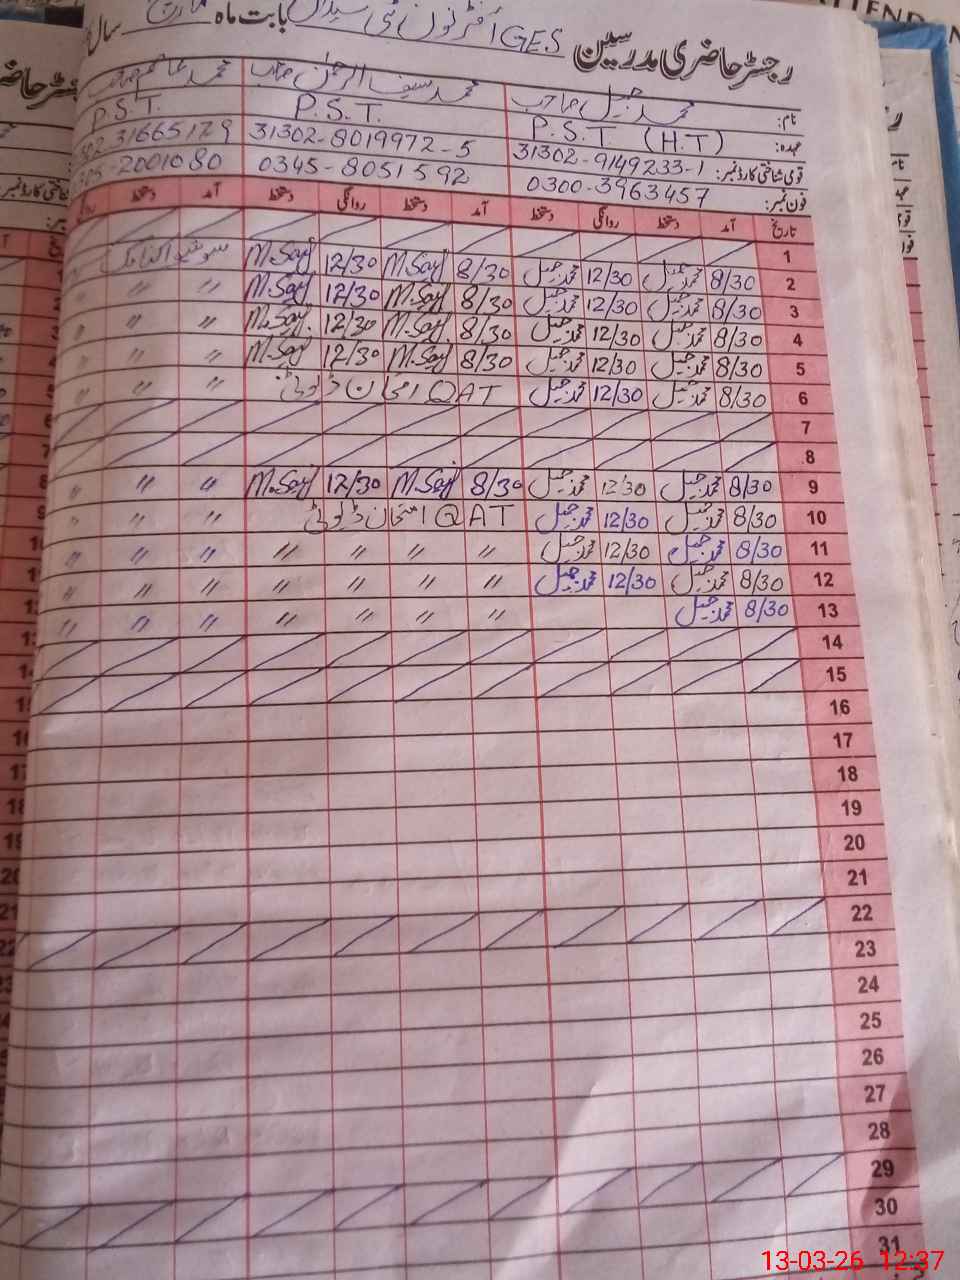 رجسٹر حاضری مدرسین GES بابت ماہ مارچ سال
نام: محمد جمیل صاحب محمد سیف الرحمٰن صاحب محمد
عہدہ: P.S.T (H.T) P.S.T. P.S.T.
قومی شناختی کارڈ نمبر: 31302-9149233-1 31302-8019972-5
فون نمبر: 0300-3963457 0345-8051592 2001080
تاریخ آمد دستخط روانگی دستخط آمد دستخط روانگی دستخط آمد دستخط
1
2 8/30 محمد جمیل 12/30 محمد جمیل 8/30 M.Saif 12/30 M.Saif
3 8/30 محمد جمیل 12/30 محمد جمیل 8/30 M.Saif 12/30 M.Saif 〃 〃
4 8/30 محمد جمیل 12/30 محمد جمیل 8/30 M.Saif 12/30 M.Saif 〃 〃
5 8/30 محمد جمیل 12/30 محمد جمیل 8/30 M.Saif 12/30 M.Saif 〃 〃
6 8/30 محمد جمیل 12/30 محمد جمیل QAT امتحان ڈیوٹی 〃 〃
7
8
9 8/30 محمد جمیل 12/30 محمد جمیل 8/30 M.Saif 12/30 M.Saif 〃 〃 〃
10 8/30 محمد جمیل 12/30 محمد جمیل QAT امتحان ڈیوٹی 〃 〃 〃
11 8/30 محمد جمیل 12/30 محمد جمیل 〃 〃 〃 〃 〃 〃 〃
12 8/30 محمد جمیل 12/30 محمد جمیل 〃 〃 〃 〃 〃 〃 〃
13 8/30 محمد جمیل 〃 〃 〃 〃 〃 〃 〃
14
15
16
17
18
19
20
21
22
23
24
25
26
27
28
29
30
31
13-03-26 12:37